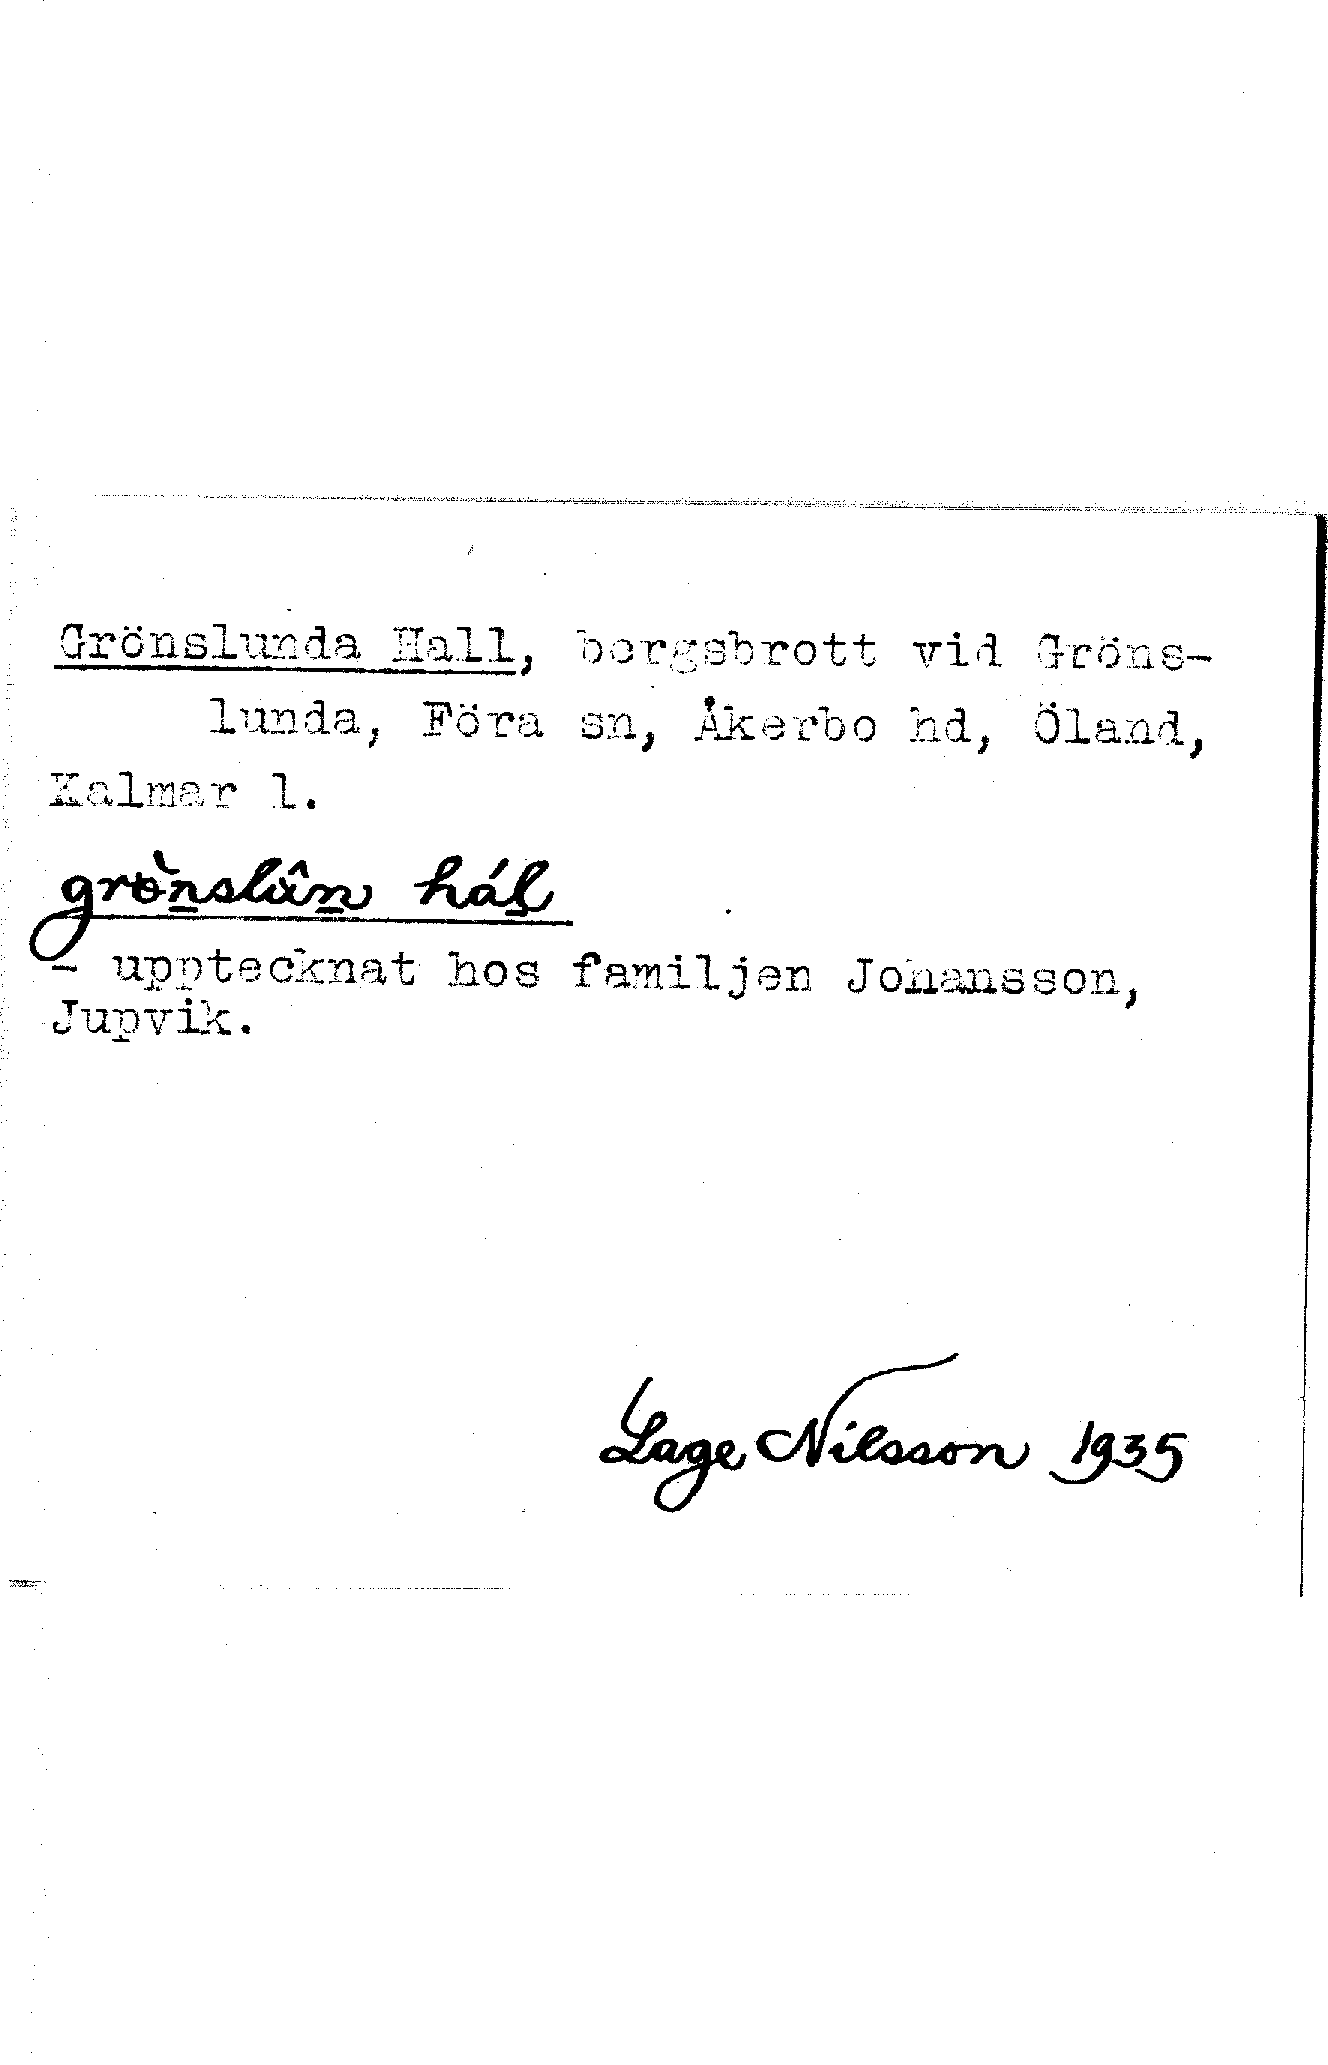 Grönslunda Hall, bergsbrott vid Gröns-
lunda, Föra sn, Åkerbo hd, Öland,
Kalmar l.
grө̀nslân hál
- upptecknat hos familjen Johansson,
Jupvik.
Lage Nilsson 1935